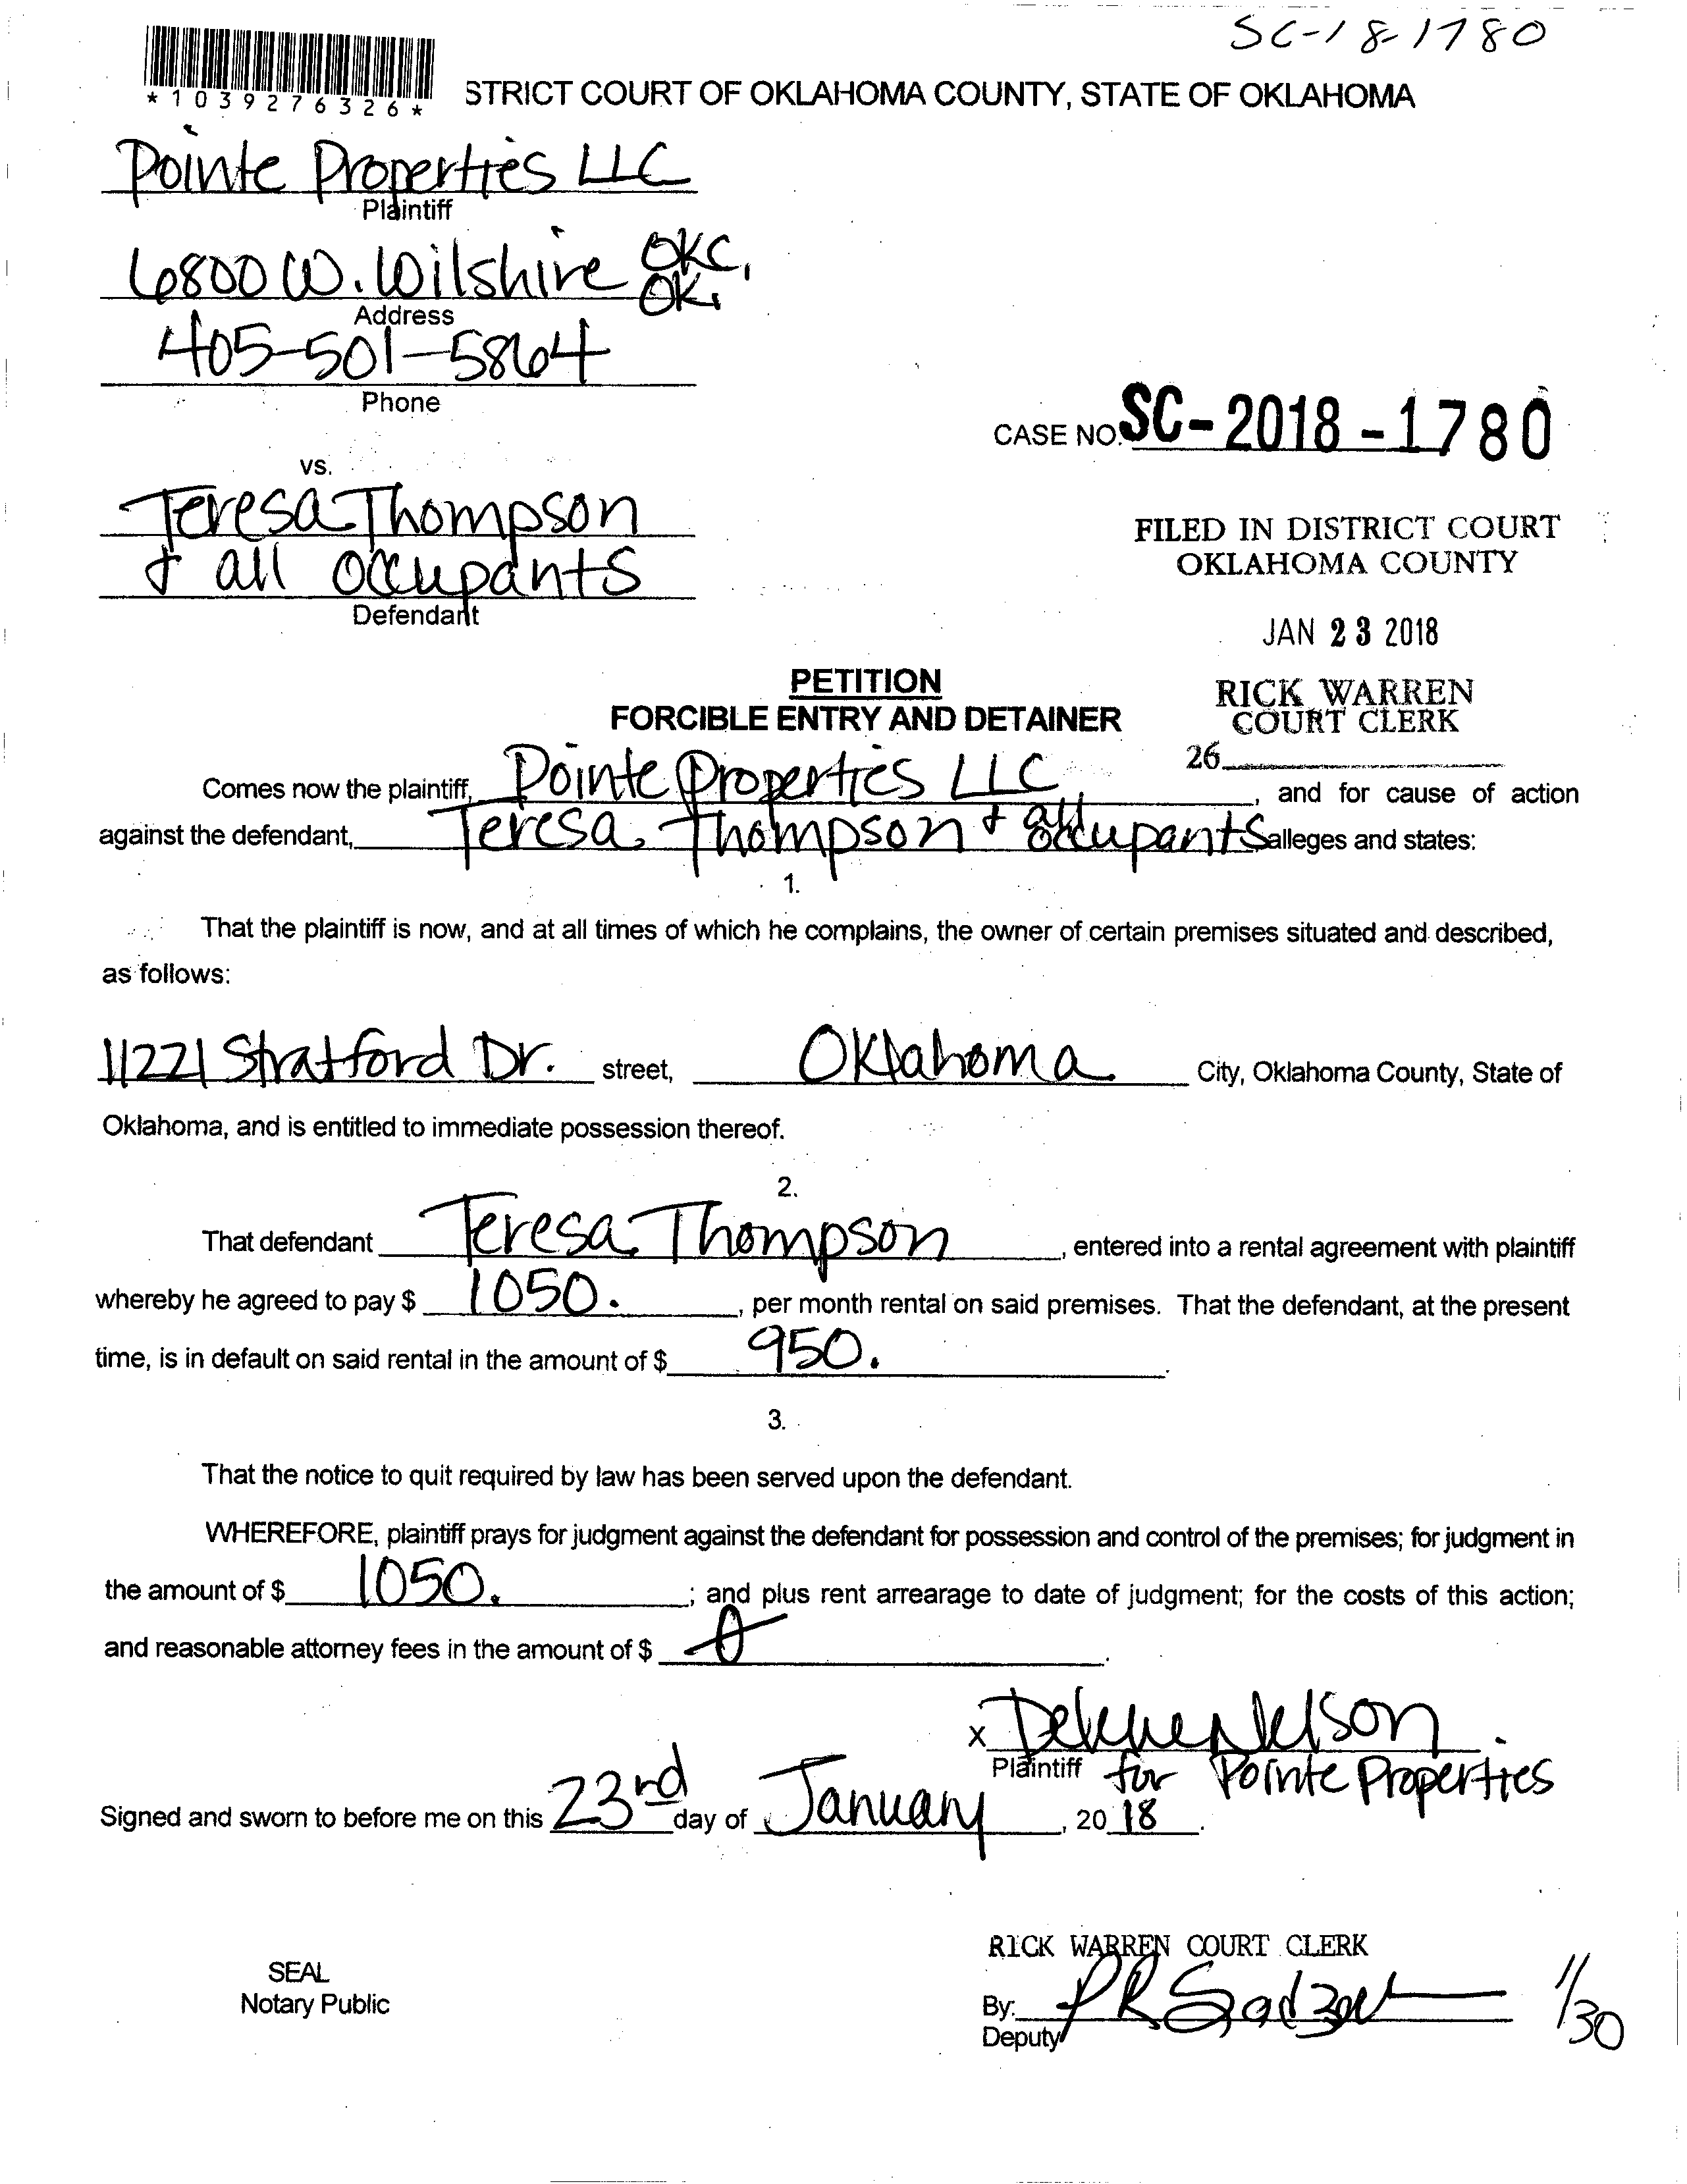 SC-18-1780
*1039276326*
STRICT COURT OF OKLAHOMA COUNTY, STATE OF OKLAHOMA
Pointe Properties LLC
Plaintiff
6800 W. Wilshire OKC, OK.
Address
405-501-5864
Phone
CASE NO. SC-2018-1780
vs.
Teresa Thompson
& all occupants
Defendant
FILED IN DISTRICT COURT
OKLAHOMA COUNTY
JAN 23 2018
RICK WARREN
COURT CLERK
26
PETITION
FORCIBLE ENTRY AND DETAINER
Comes now the plaintiff, Pointe Properties LLC, and for cause of action
against the defendant, Teresa Thompson & all occupants alleges and states:
1.
That the plaintiff is now, and at all times of which he complains, the owner of certain premises situated and described,
as follows:
11221 Stratford Dr. street, Oklahoma City, Oklahoma County, State of
Oklahoma, and is entitled to immediate possession thereof.
2.
That defendant Teresa Thompson, entered into a rental agreement with plaintiff
whereby he agreed to pay $ 1050., per month rental on said premises. That the defendant, at the present
time, is in default on said rental in the amount of $ 950. .
3.
That the notice to quit required by law has been served upon the defendant.
WHEREFORE, plaintiff prays for judgment against the defendant for possession and control of the premises; for judgment in
the amount of $ 1050. ; and plus rent arrearage to date of judgment; for the costs of this action;
and reasonable attorney fees in the amount of $ 0 .
x Nelson
Plaintiff for Pointe Properties
Signed and sworn to before me on this 23rd day of January, 20 18.
RICK WARREN COURT CLERK
SEAL
Notary Public
By:
Deputy
1/30